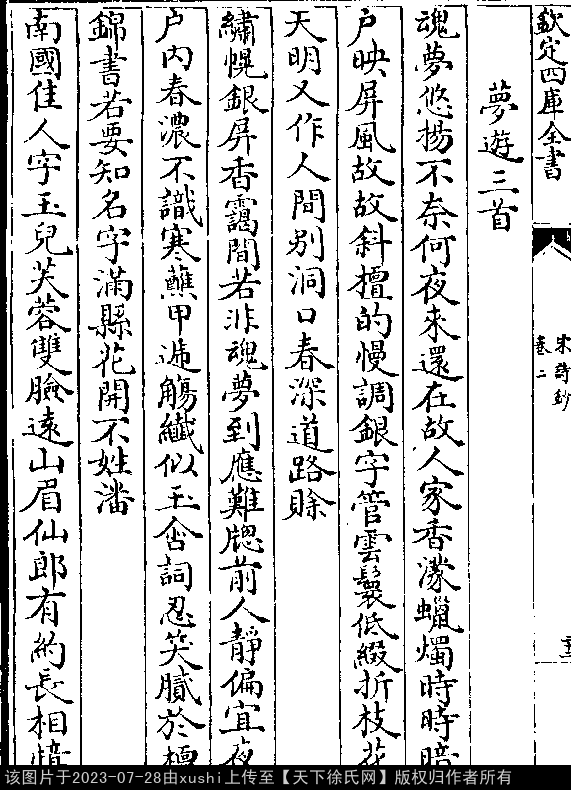 欽定四庫全書
宋詩鈔
卷二
夢遊三首
魂夢悠揚不奈何夜來還在故人家香濛蠟燭時時暗
户映屏風故故斜檀的慢調銀字管雲鬟低綴折枝花
天明又作人間别洞口春深道路賖
繡幌銀屏杳靄間若非魂夢到應難牕前人靜偏宜夜
户内春濃不識寒蘸甲遞觴纖似玉含詞忍笑膩於檀
錦書若要知名字滿縣花開不姓潘
南國佳人字玉兒芙蓉雙臉遠山眉仙郎有約長相憶
该图片于2023-07-28由xushi上传至【天下徐氏网】版权归作者所有